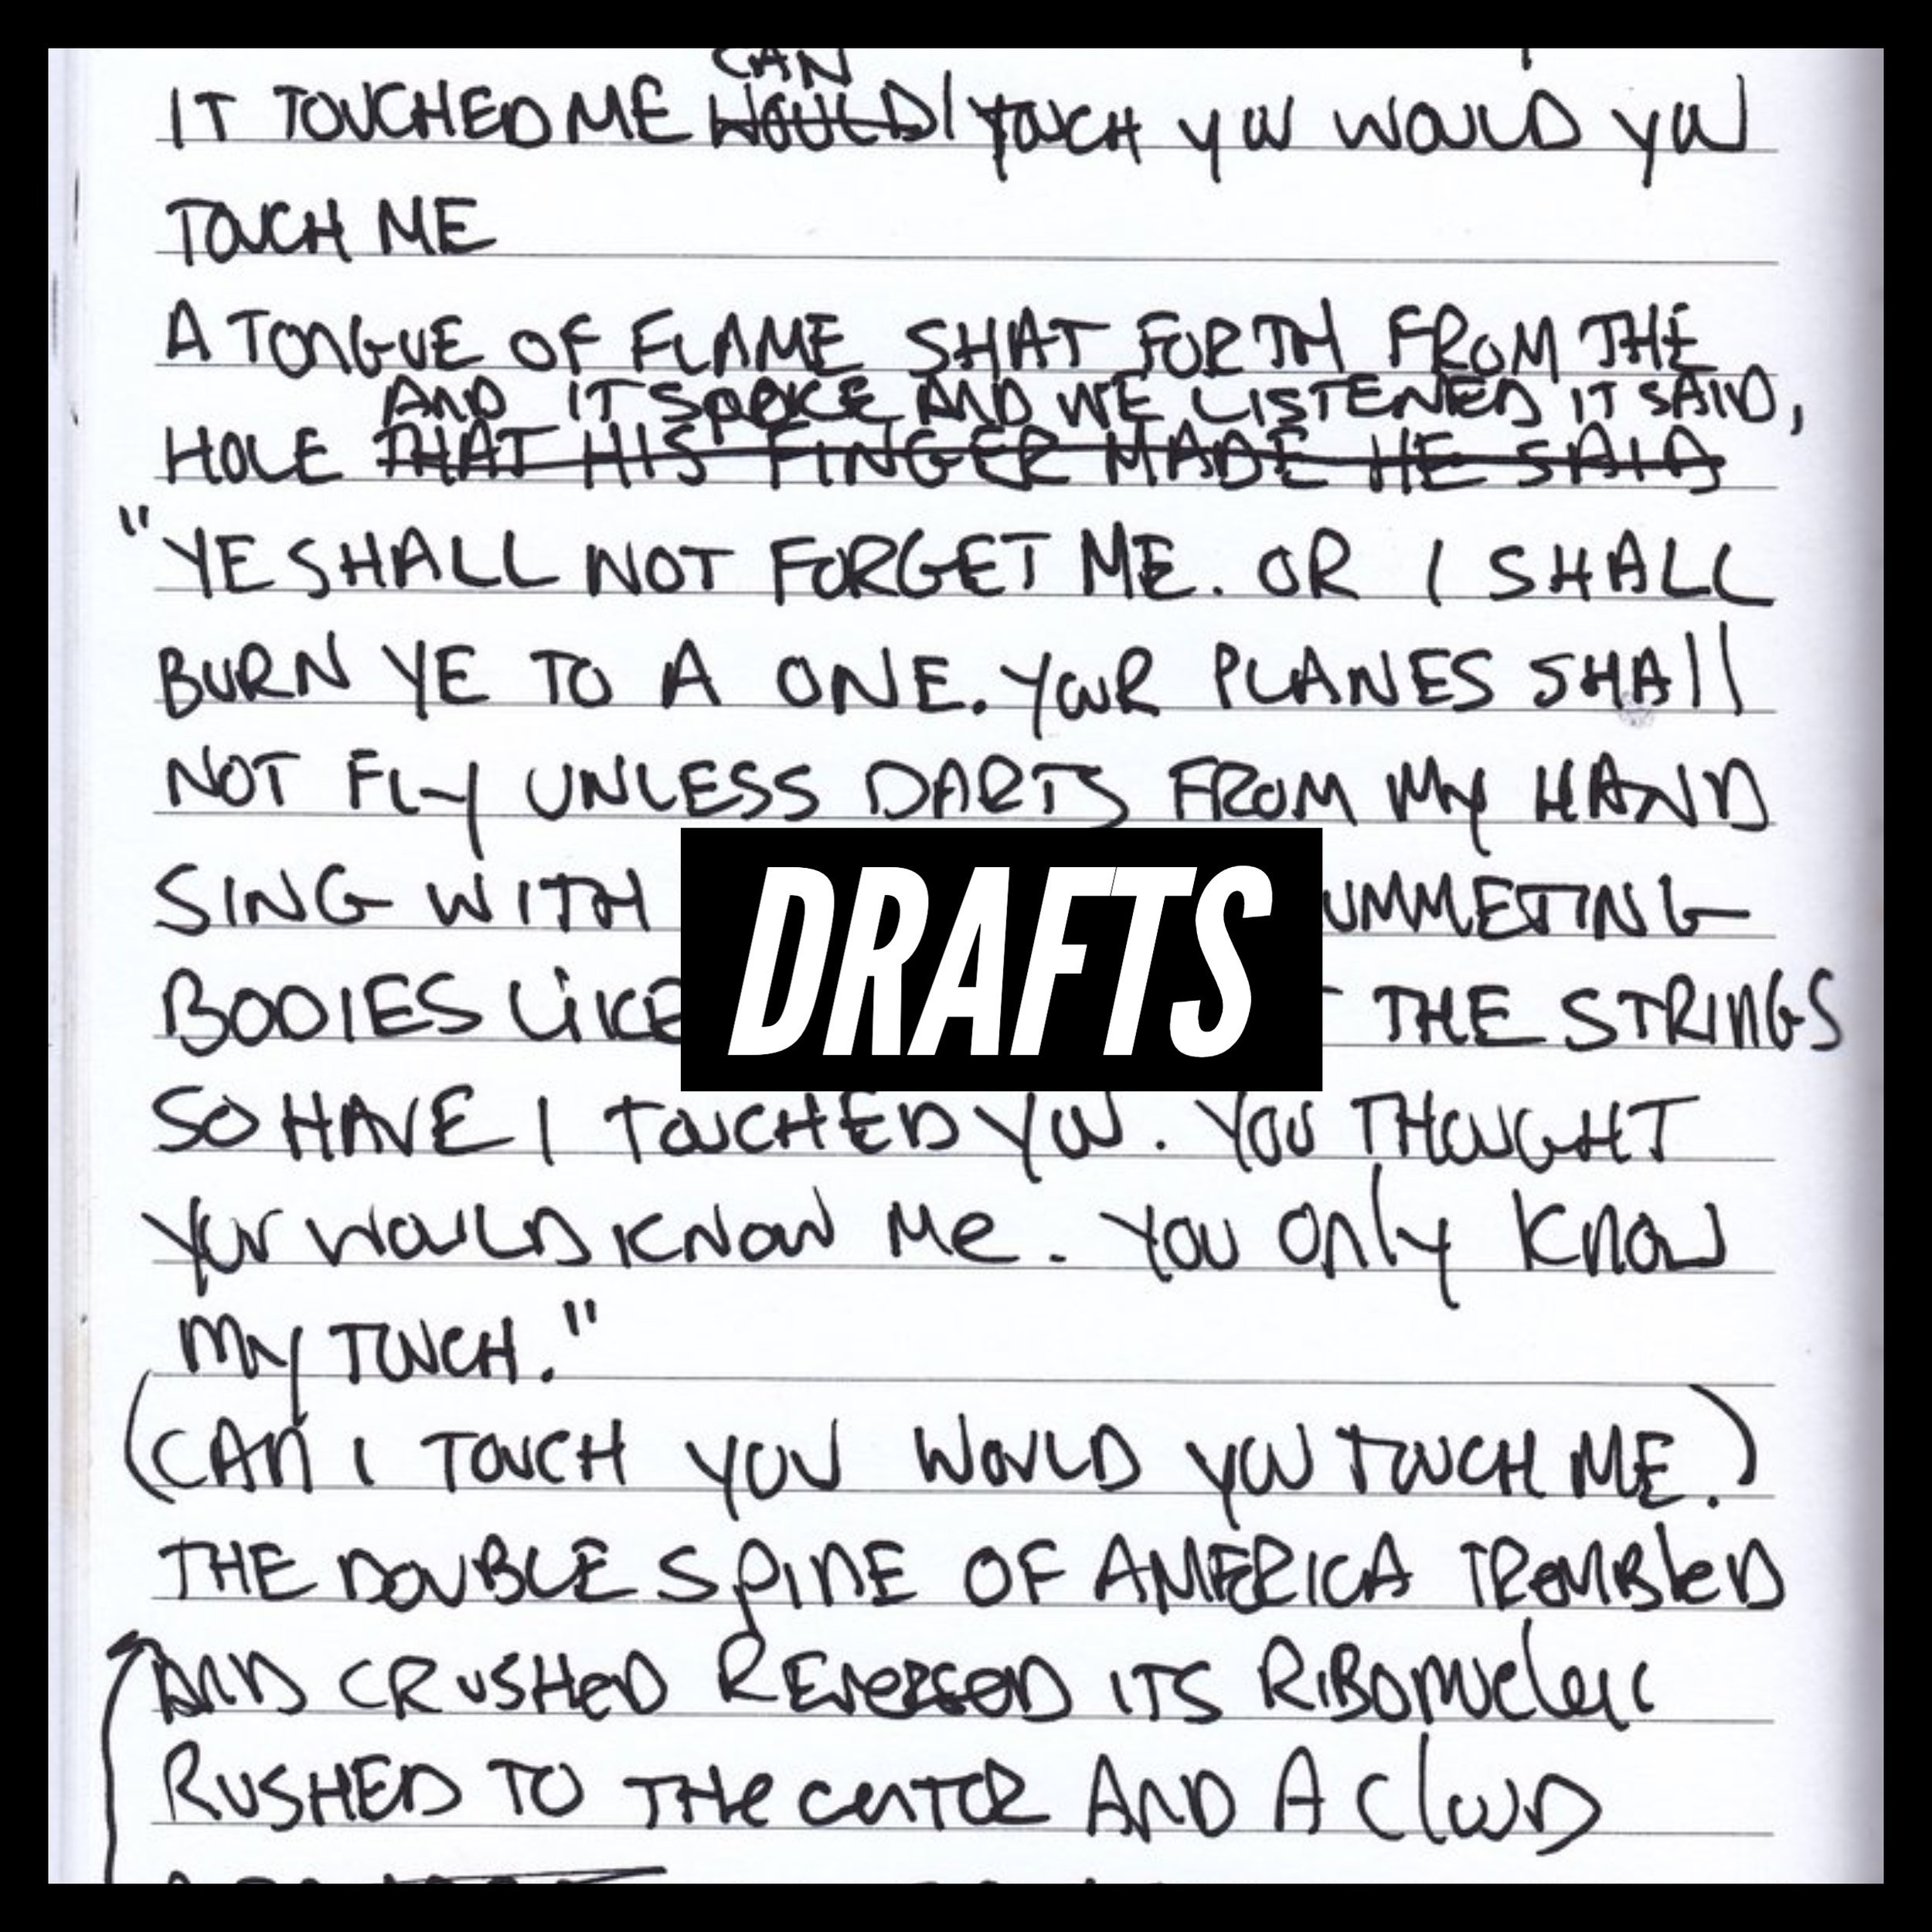 CAN
IT TOUCHED ME WOULD I TOUCH YOU WOULD YOU
TOUCH ME
A TONGUE OF FLAME SHAT FORTH FROM THE
AND IT SPOKE AND WE LISTENED IT SAID,
HOLE THAT HIS FINGER MADE HE SAID
"YE SHALL NOT FORGET ME. OR I SHALL
BURN YE TO A ONE. YOUR PLANES SHAll
NOT FLY UNLESS DARTS FROM MY HAND
SING WITH UMMETING
DRAFTS
BODIES LiKE THE STRINGS
SO HAVE I TOUCHED YOU. YOU THOUGHT
YOU WOULD KNOW Me. YOU Only Know
My TOUCH."
(CAn I TOUCH YOU WOULD YOU TOUCH ME.)
THE DOUBLE SPINE OF AMERICA TREMBleD
AND CRUSHeD REVERSED ITS RIBONUCleic
RUSHED TO THe CeNTER AND A ClOUD